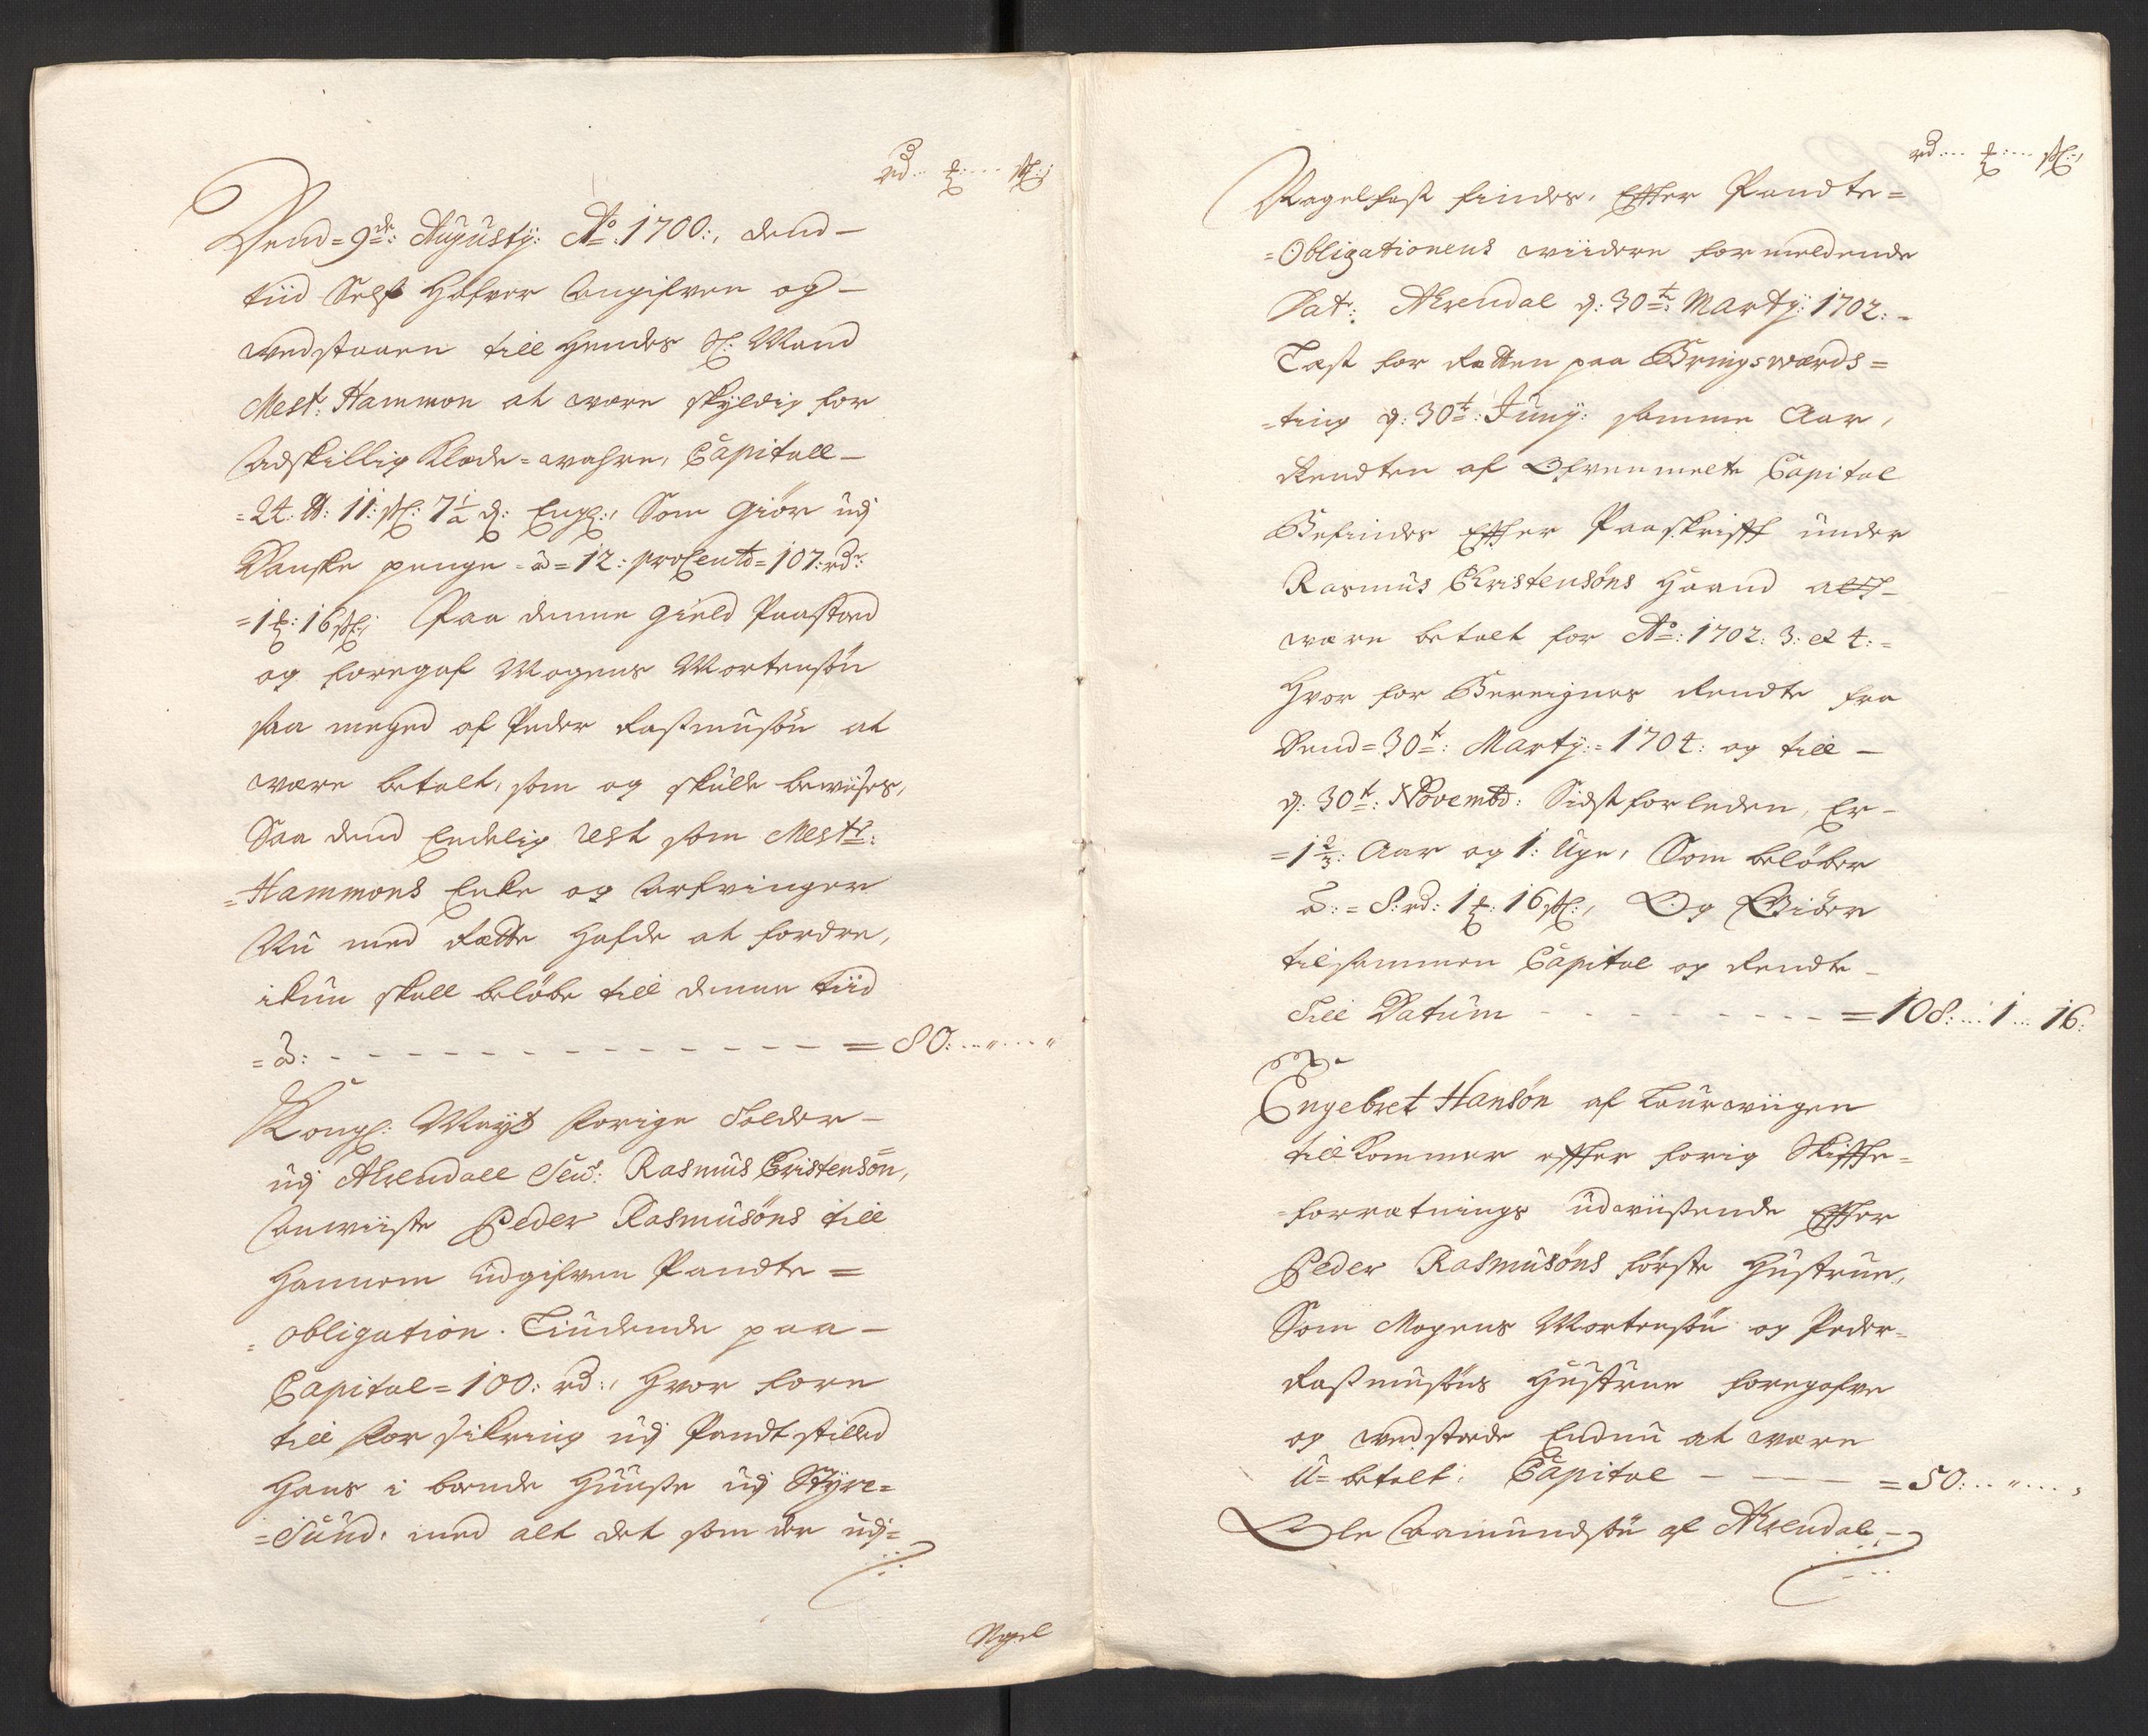 rd... ƶ:... sk:
Dend = 9de: Augustÿ: Ao: 1700:, dend –
tiid Self Hafver Angifven og –
wedstaaen till Hendes Sl: Mand
Mest: Hammon at være skÿldig for
Adskillig Klæde = wahre, Capitall –
= 24: ℔: 11: sk: 7½ d: Engl:, Som Giör udj
Danske penge - a = 12: procento = 107: rdr:
= 1ƶ: 16 sk: Paa denne Gield Paastod
og foregaf Mogens Mortensön
saa meged af Peder Rasmusön at
være betalt, som og skulle bewiises,
Saa dend Endelig rest som Mestr:
= Hammons Enke og Arfvinger
Nu med Rætte Hafde at fordre,
ikun skall belöbe till denne tiid
= a: - - - - - - - - - - - - - = 80: ... " ... "
Kongl: Maÿts forige Tolder –
udj Ahrendall Seur: Rasmus Cristensön,
Anwiiste Peder Rasmusöns till
Hannem udgifven Pandte =
= obligation. Liudende paa –
Capital = 100: rd:, Hvor fore
till For sikring udj Pandt stilled
Hans i boende Huuse udj Stÿre =
= Sund, med alt det som der udj =
Nagel
rd... ƶ:... sk:
Nagelfast findes, Efter Pandte =
= Obligationens wiidere formeldende
Dat: Ahrendal d: 30te: Martÿ: 1702: -
Læst for Retten paa Bringsværds =
= ting d: 30te: Junÿ: samme Aar,
Rendten af Ofvenmelte Capital
Befindes Efter Paaskrifft under
Rasmus Christensöns Haand at –
være betalt for Ao: 1702: 3: et 4: =
Hvor for Bereignes Rendte fra
Dend = 30te: Martÿ: = 1704: og till –
d: 30te: Novembr: Sidst forleden, Er –
= 1⅔: Aar og 1: Uge, Som belöber
a: = 8: rd: 1ƶ: 16 sk:, Og Giöer
tilsammen Capital og Rendte –
Till Datum - - - - - - - - = 108: ... 1 ... 16:
Engebret Hansön af Laurwiigen
till Kommer effter forig Skiffte =
= forretnings udwiissende Effter
Peder Rasmusöns förste Hustrue,
Som Mogens Mortensön og Peder =
Rasmusöns Hustrue foregafve
og wedstoede Endnu at være
U = betalt, Capital - — — = 50: .. " ... "
Ole Aamundsön af Ahrendal –